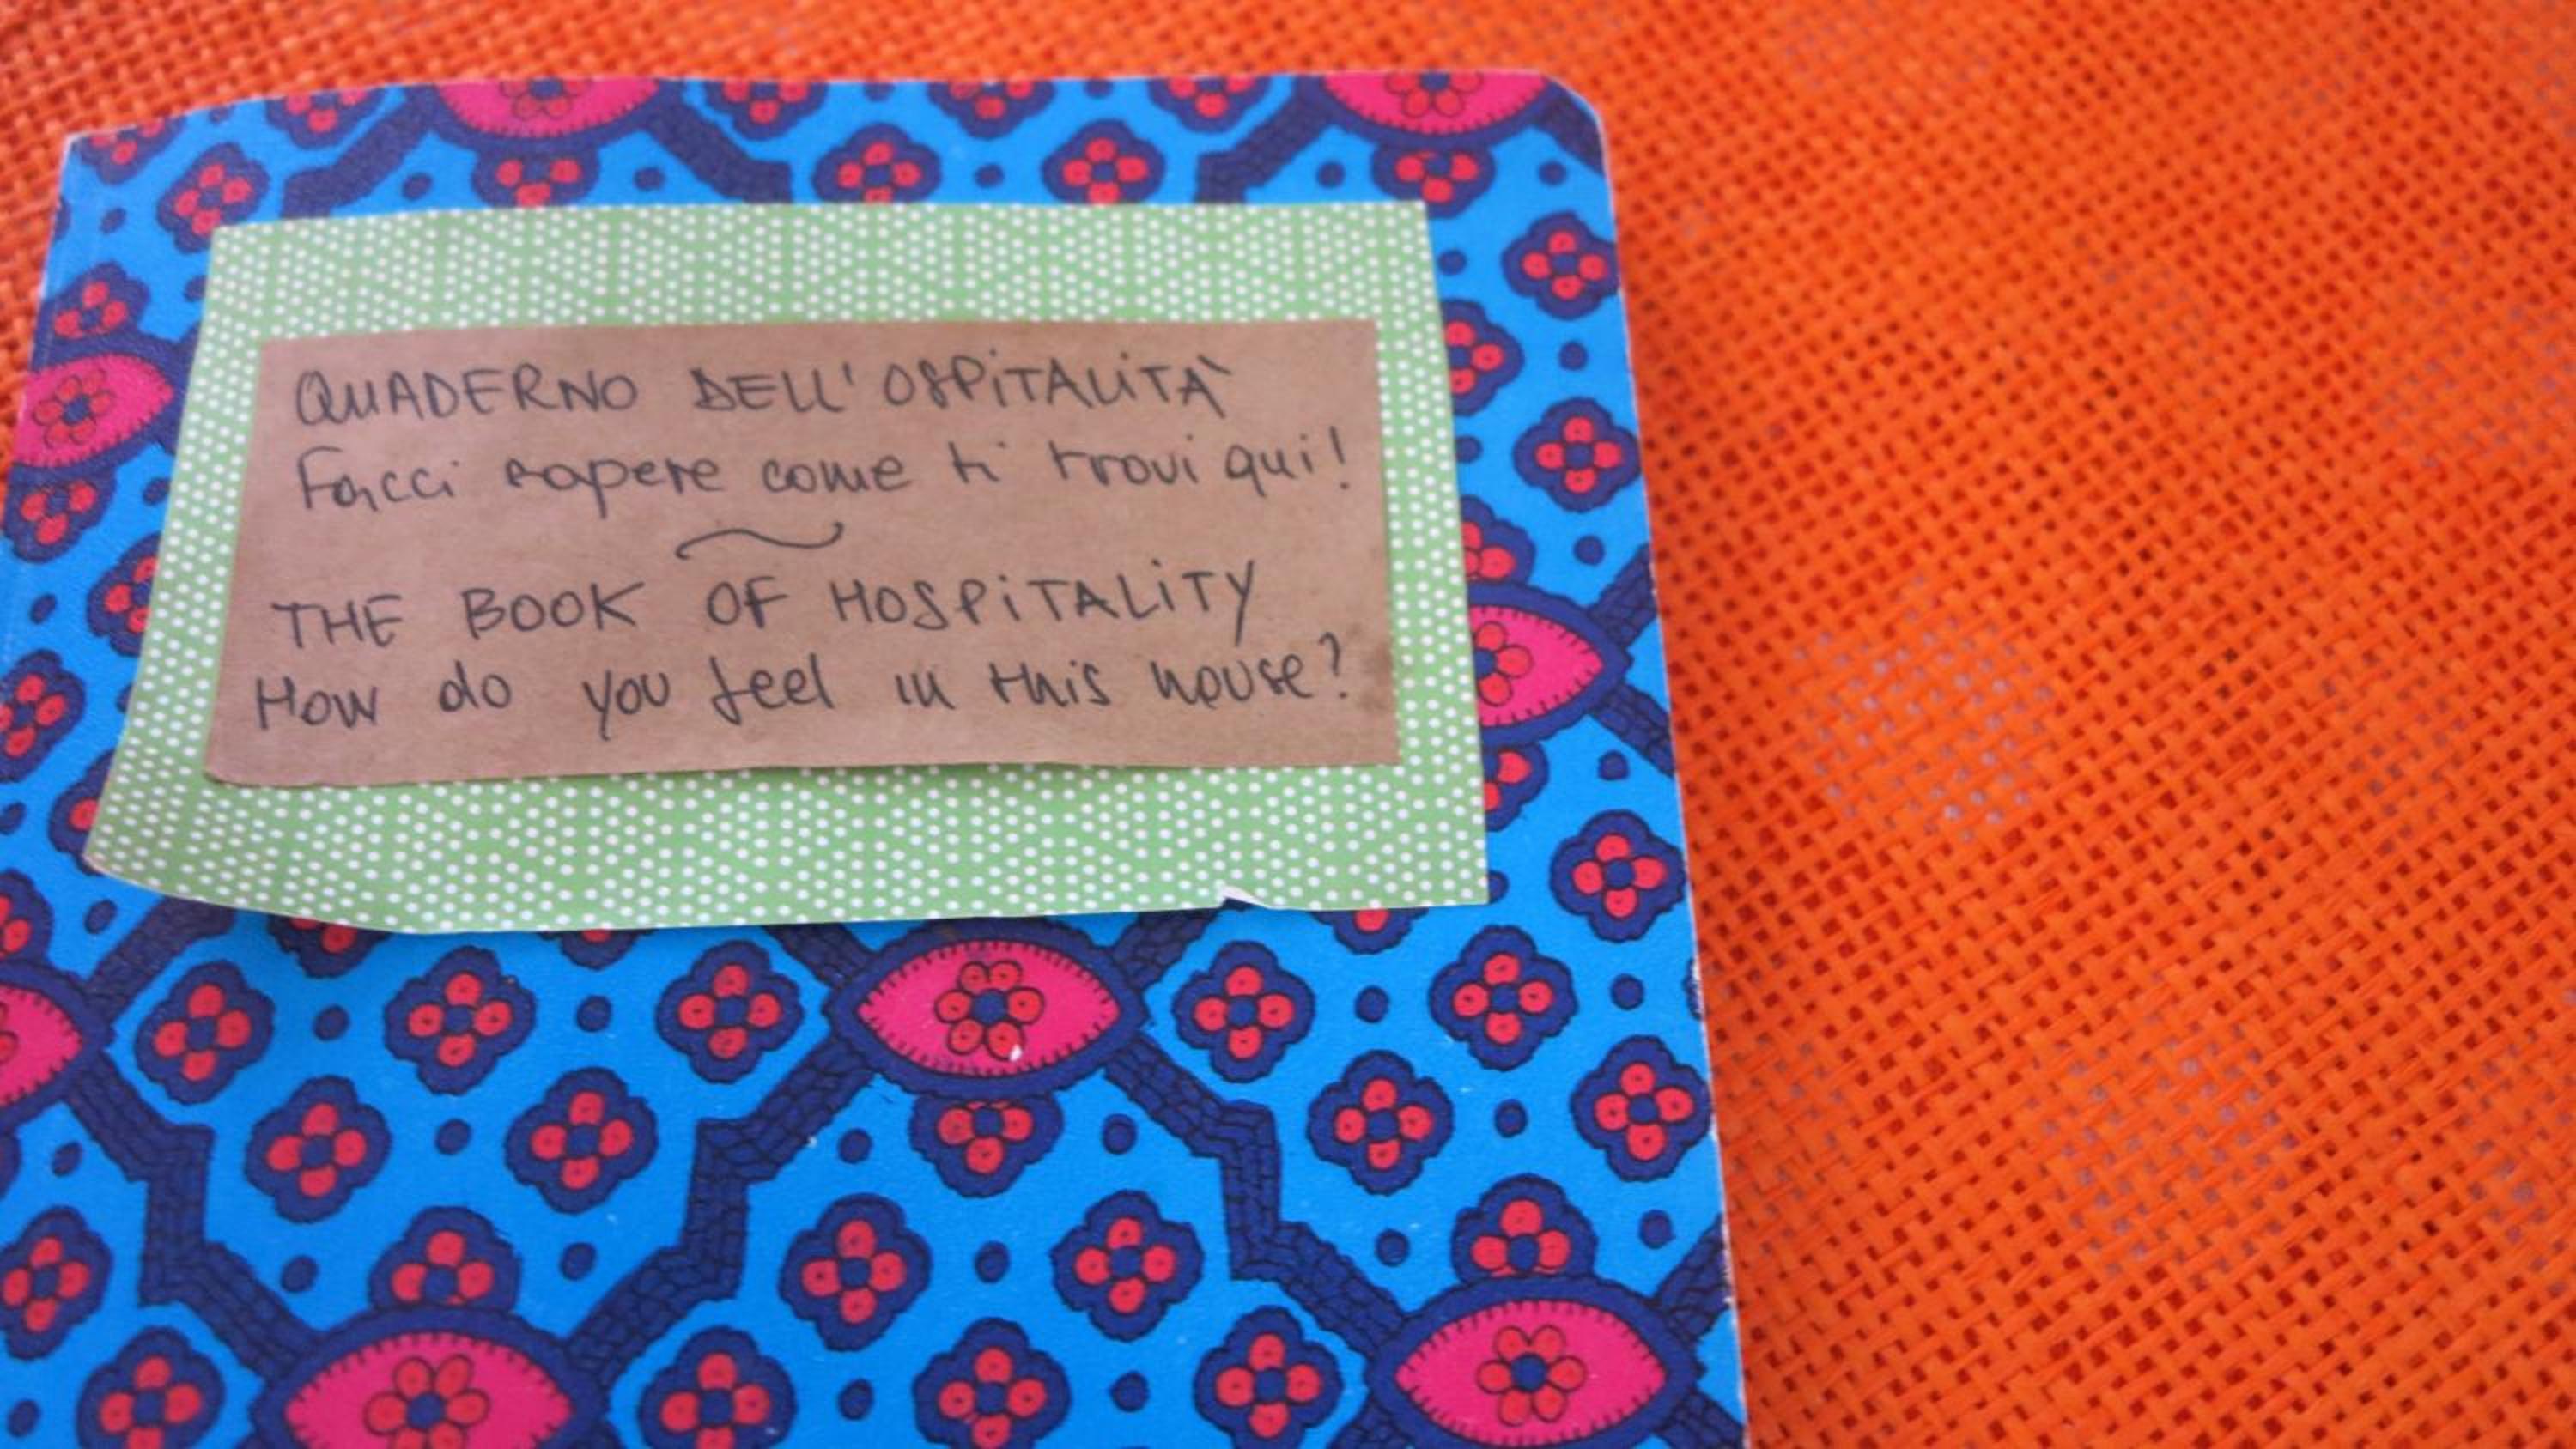 QUADERNO DELL'OSPITALITÀ
Facci sapere come ti trovi qui!
THE BOOK OF HOSPITALITY
How do you feel in this house?